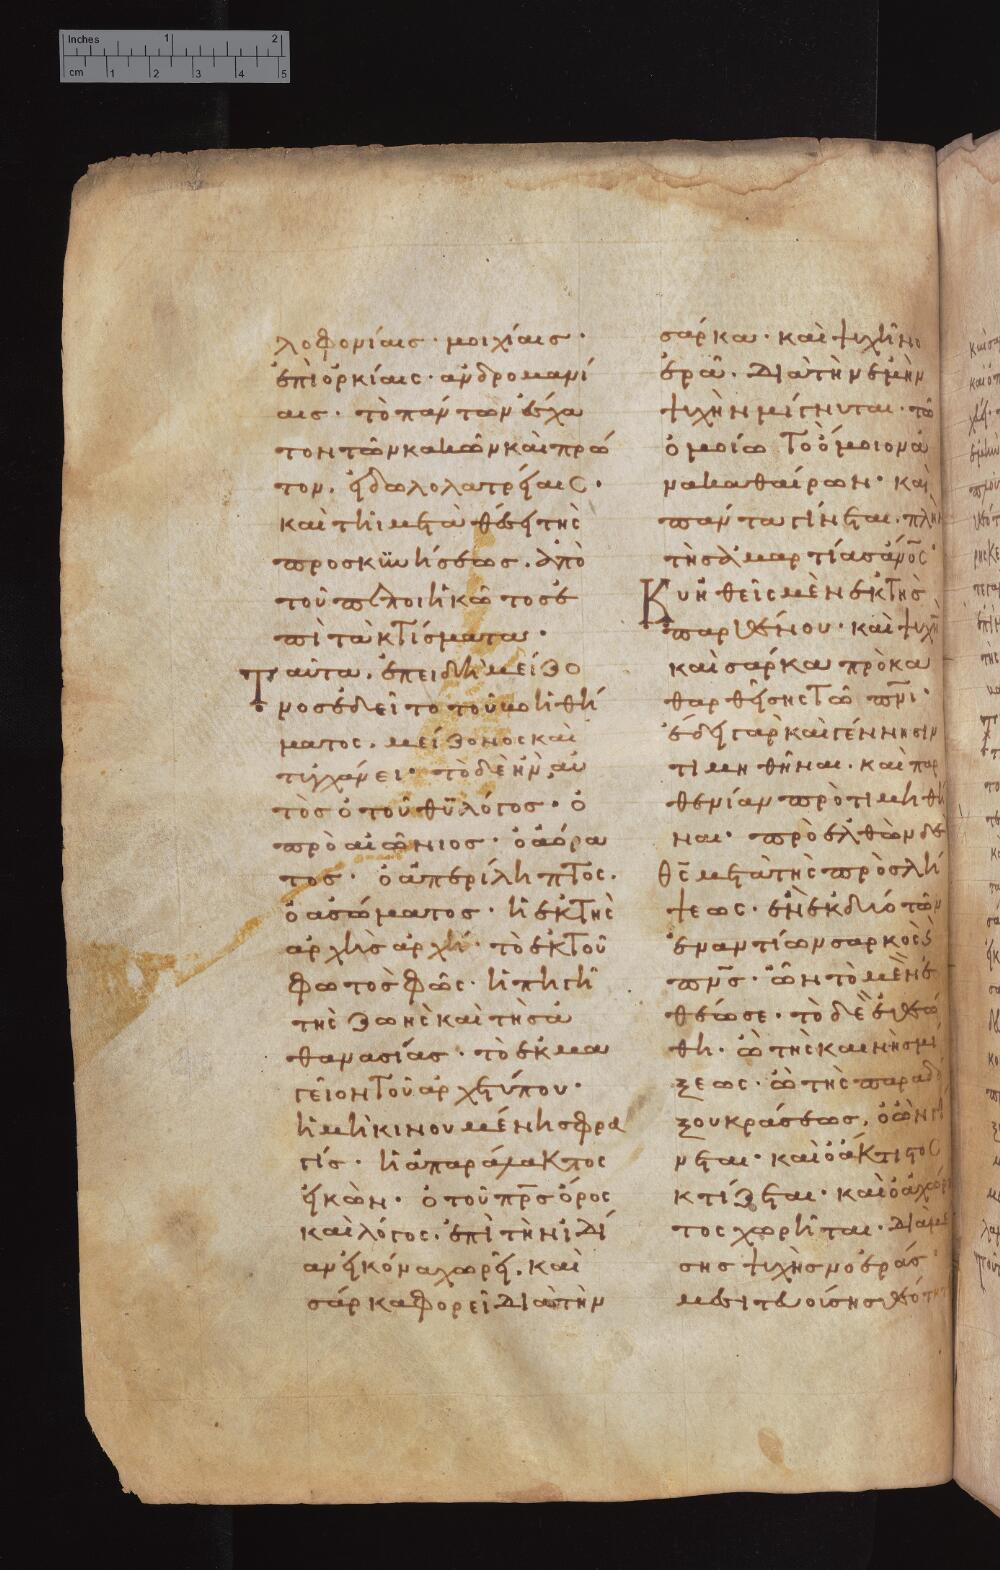 Inches 1 2
cm 1 2 3 4 5
λοφονίαις · μοιχίαις ·
ἐπιορκίαις · ἀνδρομανί
αις · τὸ πάντων ἔσχα
τον τῶν κακῶν καὶ πρώ
τον, εἰδωλολατρείαις ·
καὶ τῆι μεταθέσει τῆς
προσκϋνήσεως, ἀπὸ
τοῦ πεποιηκότος ἐ
πὶ τὰ κτίσματα ·
Ταῦτα, ἐπειδὴ μείζο
νος ἐδεῖτο τοῦ βοηθή
ματος, μείζονος καὶ
τυγχάνει · τὸ δὲ ἦν, αὐ
τὸς ὁ τοῦ θῡ λόγος · ὁ
προαιώνιος · ὁ ἀόρα
τος · ὁ ἀπερίληπτος ·
ὁ ἀσώματος · ἡ ἐκ τῆς
ἀρχῆς ἀρχή · τὸ ἐκ τοῦ
φωτὸς φῶς · ἡ πηγὴ
τῆς ζωῆς καὶ τῆς ἀ
θανασίας · τὸ ἐκμα
γεῖον τοῦ ἀρχετύπου ·
ἡ μὴ κινουμένη σφρα
γίς · ἡ ἀπαράλακτος
εἰκὼν · ὁ τοῦ πρ̅ς ὅρος
καὶ λόγος, ἐπὶ τὴν ἰδί
αν εἰκόνα χωρεῖ, καὶ
σάρκα φορεῖ διὰ τὴν
σάρκα · καὶ ψυχῆι νο
ερᾶ · διὰ τὴν ἐμὴν
ψυχὴν μίγνυται · τῶ
ὁμοίω τὸ ὅμοιον ἀ
νακαθαίρων · καὶ
πάντα γίνεται · πλὴν
τῆς ἁμαρτίας ἄν̅ος ·
Κυηθεὶς μὲν ἐκ τῆς
παρθένου · καὶ ψυχὴν
καὶ σάρκα προκα
θαρθείσης τῶ πν̅ι ·
ἔδει γὰρ καὶ γέννησιν
τιμηθῆναι · καὶ παρ
θενίαν προτιμηθῆ
ναι · προελθὼν δὲ
θς̅ μετὰ τῆς προσλή
ψεως · ἓν ἐκ δύο τῶν
ἐναντίων σαρκὸς κ(αὶ)
πν̅ς · ὧν τὸ μὲν ἐ
θέωσε · τὸ δὲ ἐθεώ
θη · ὢ τῆς καινῆς μί
ξεως · ὢ τῆς παραδό
ξου κράσεως, ὁ ὢν γί
νεται · καὶ ὁ ἄκτιστος
κτίζεται · καὶ ὁ ἀχώρη
τος χωρῆται · διὰ μέ
σης ψυχῆς νοερᾶς ·
μεσιτευούσης θεότητι